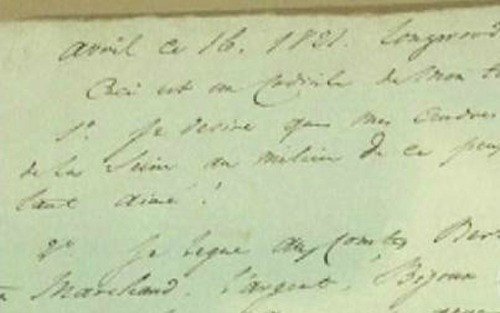 avril ce 16. 1821. Longwood
Ceci est un Codicile de mon
1º Je desire que mes Cendres
de la Seine au milieu de ce peup
tant aimé!
2º Je legue aux Comtes Bert
Marchand, l'argent, Bijoux